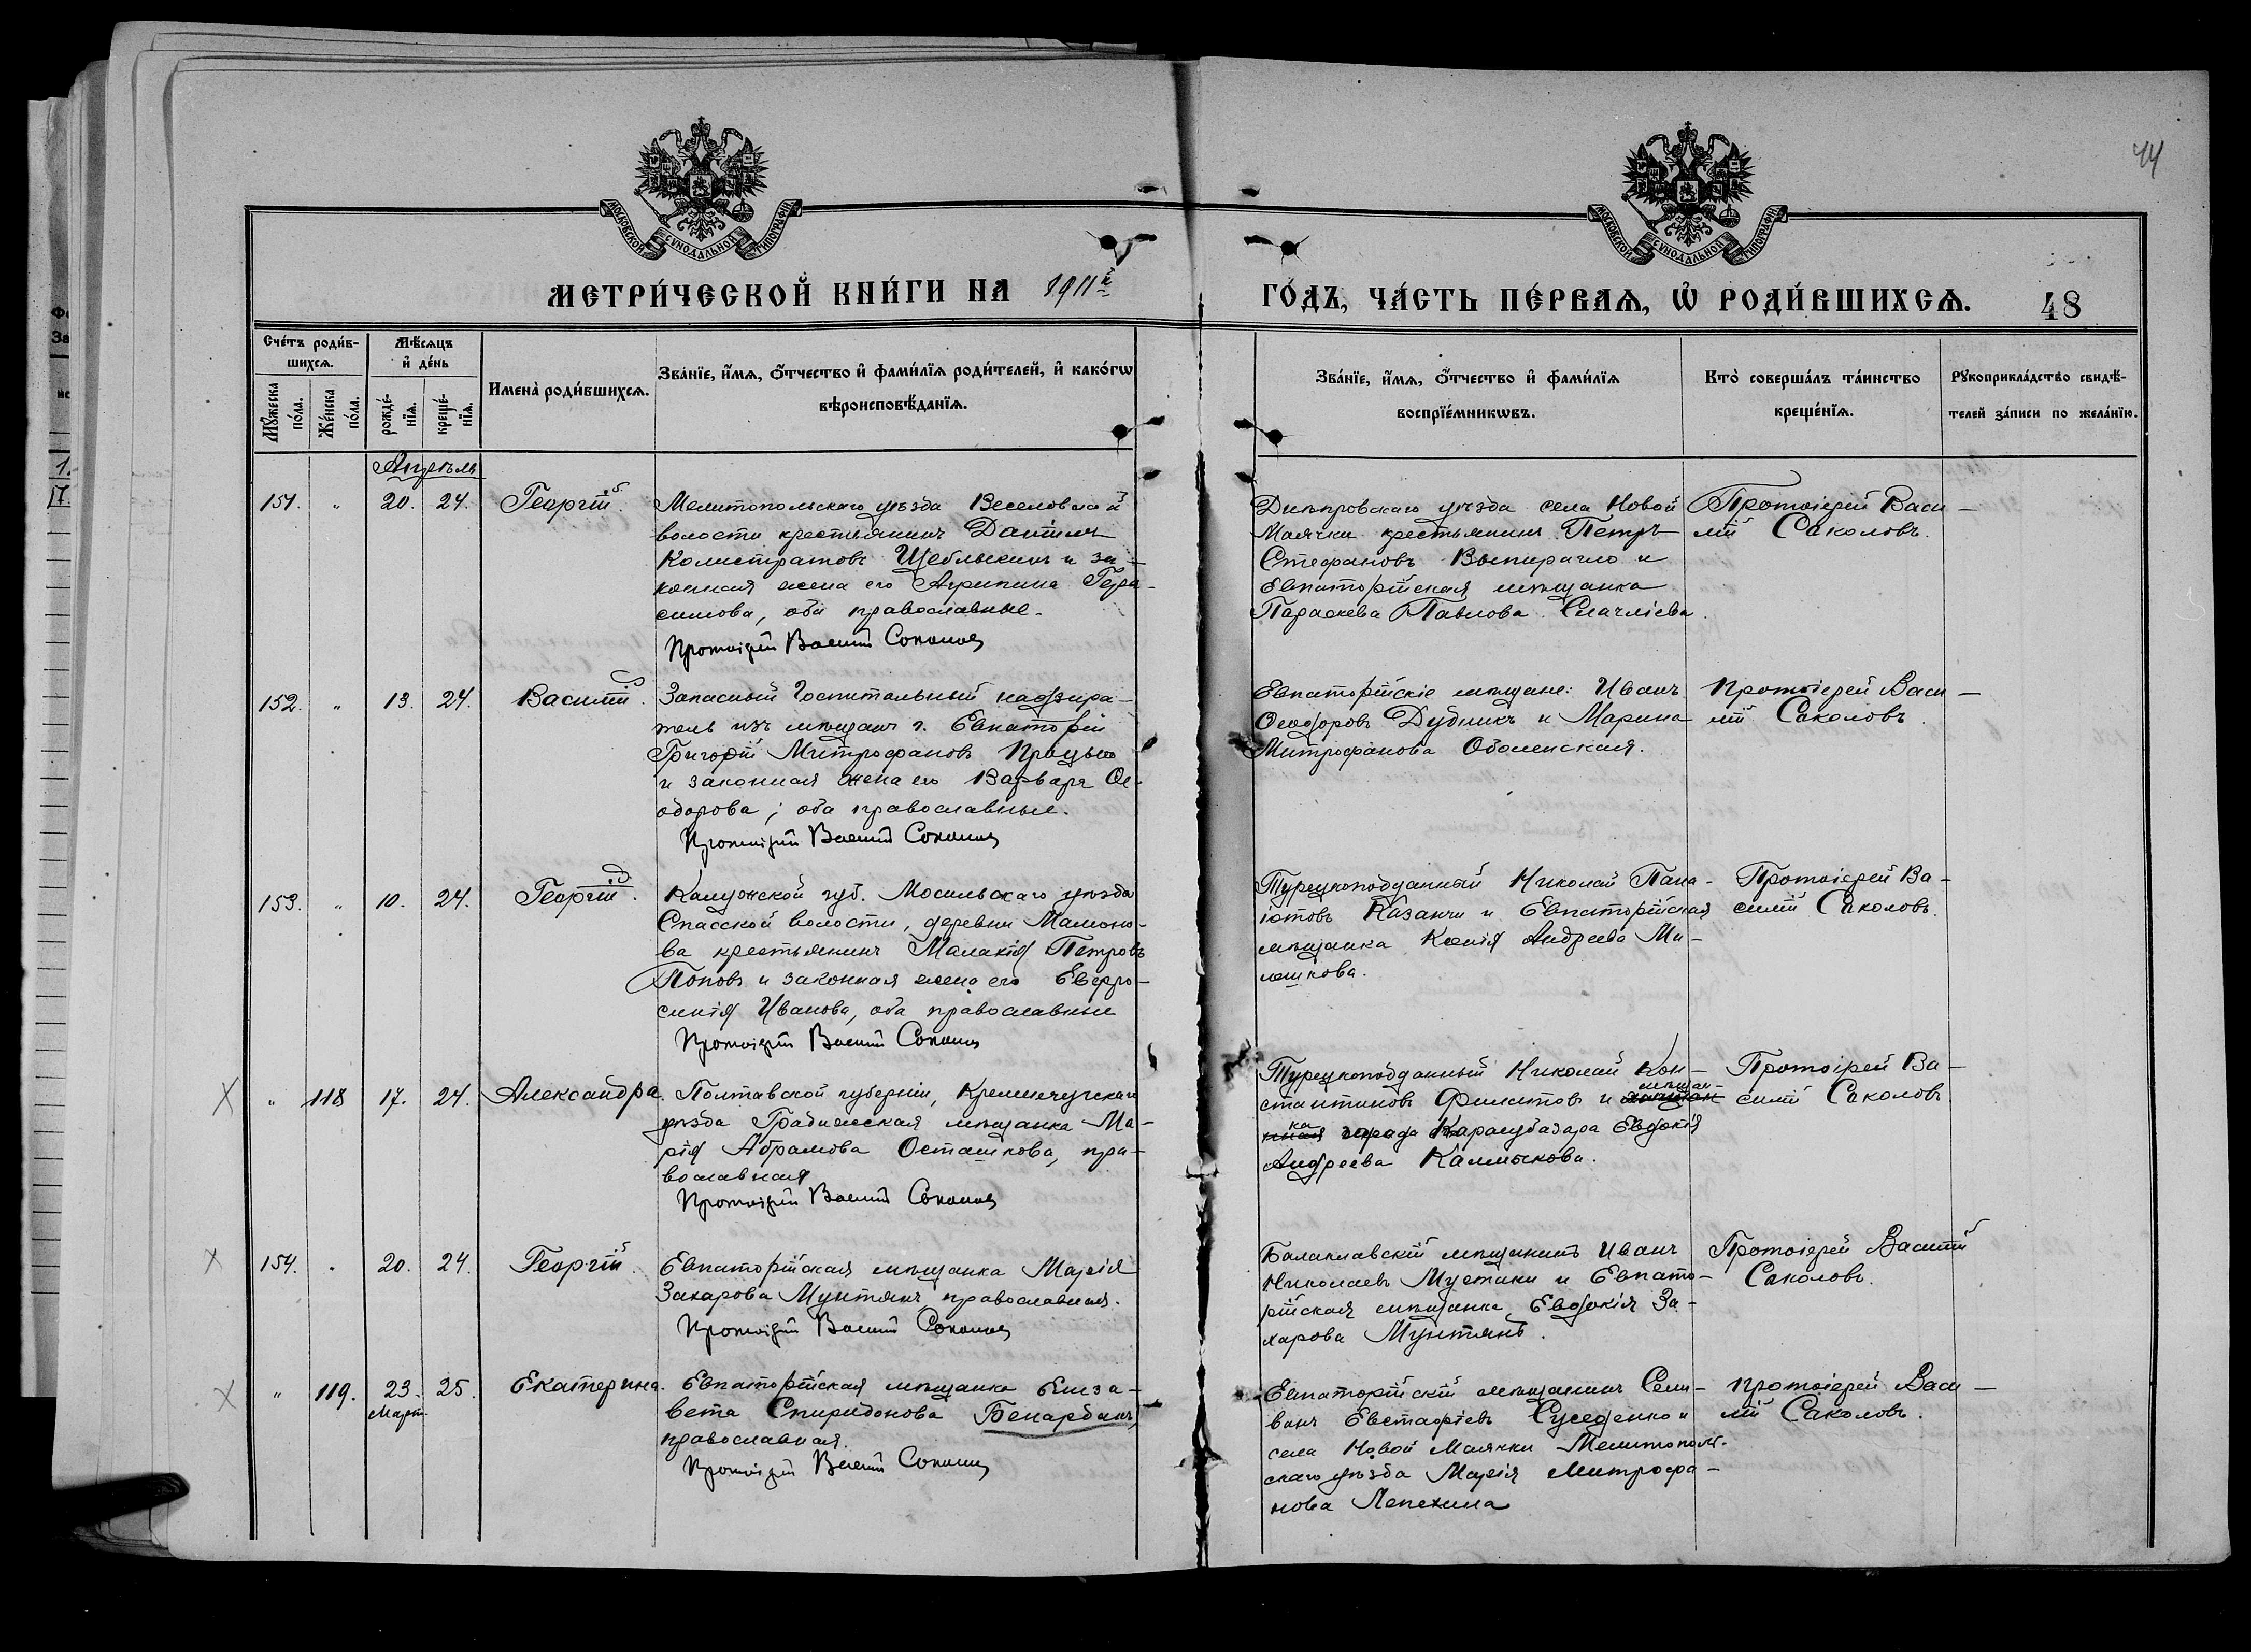 44
МОСКОВСКОЙ СѴНОДАЛЬНОЙ ТИПОГРАФІИ
МОСКОВСКОЙ СѴНОДАЛЬНОЙ ТИПОГРАФІИ
МЕТРИ́ЧЕСКОЙ КНИ́ГИ НА 1911й
ГО́ДЪ, ЧА́СТЬ ПЕ́РВАѦ, Ѡ҆ РОДИ́ВШИХСѦ. 48
Сче́тъ роди́в-
шихсѧ.
Мꙋ́жеска по́ла.
Же́нска по́ла.
Мѣ́сѧцъ
и҆ де́нь
рожде́-
нїѧ.
креще́-
нїѧ.
Имена̀ роди́вшихсѧ.
Зва́нїе, и҆́мѧ, ѻ҆́тчество и҆ фами́лїѧ роди́телей, и҆ како́гѡ
вѣроисповѣ́данїѧ.
Зва́нїе, и҆́мѧ, ѻ҆́тчество и҆ фами́лїѧ
воспрїе́мникѡвъ.
Кто̀ соверша́лъ та́инство
креще́нїѧ.
Рꙋкоприкла́дство свидѣ́-
телей за́писи по жела́нїю.
Апрѣль
151. " 20. 24. Георгій.
Мелитопольскаго уѣзда Веселовской
волости крестьянинъ Даніилъ
Калистратовъ Щеблыкинъ и за-
конная жена его Агрипина Гера-
симова, оба православные.
Протоіерей Василій Соколовъ
Днѣпровскаго уѣзда села Новой
Маячки крестьянинъ Петръ
Стефановъ и
Евпаторійская мѣщанка
Параскева Павлова
Протоіерей Васи-
лій Соколовъ.
152. " 13. 24. Василій.
Запасный Госпитальный надзира-
тель изъ мѣщанъ г. Евпаторіи
Григорій Митрофановъ Процько
и законная жена его Варвара Ѳе-
одорова; оба православные.
Протоіерей Василій Соколовъ
Евпаторійскіе мѣщане: Иванъ
Ѳеодоровъ Дубникъ и Марина
Митрофанова Оболенская.
Протоіерей Васи-
лій Соколовъ.
153. " 10. 24. Георгій.
Калужской губ. Мосальскаго уѣзда
Спасской волости, деревни Мамоно-
ва крестьянинъ Малахія Петровъ
Поповъ и законная жена его Евфро-
синія Иванова, оба православные
Протоіерей Василій Соколовъ
Турецкоподданный Николай Пана-
іотовъ Казанчи и Евпаторійская
мѣщанка Ксенія Андреева Ми-
лешкова.
Протоіерей Ва-
силій Соколовъ.
Х " 118 17. 24. Александра.
Полтавской губерніи, Кременчугскаго
уѣзда Градижская мѣщанка Ма-
рія Абрамова Осташкова, пра-
вославная
Протоіерей Василій Соколовъ
Турецкоподданный Николай Кон-
стантиновъ Филитовъ и мѣщан-
ка города Карасубазара Евдокія
Андреева Калмыкова.
Протоіерей Ва-
силій Соколовъ
Х 154. " 20. 24. Георгій.
Евпаторійская мѣщанка Марія
Захарова Мунтянъ, православная.
Протоіерей Василій Соколовъ
Балаклавскій мѣщанинъ Иванъ
Николаевъ Мустаки и Евпато-
рійская мѣщанка Евдокія За-
харова Мунтянъ.
Протоіерей Василій
Соколовъ.
Х " 119. 23. Март. 25. Екатерина.
Евпаторійская мѣщанка Елиза-
вета Спиридонова Бенарданъ,
православная.
Протоіерей Василій Соколовъ
Евпаторійскій мѣщанинъ Сели-
ванъ Евстафіевъ Суседенко и
села Новой Маячки Мелитополь-
скаго уѣзда Марія Митрофа-
нова Лепехина
Протоіерей Васи-
лій Соколовъ.